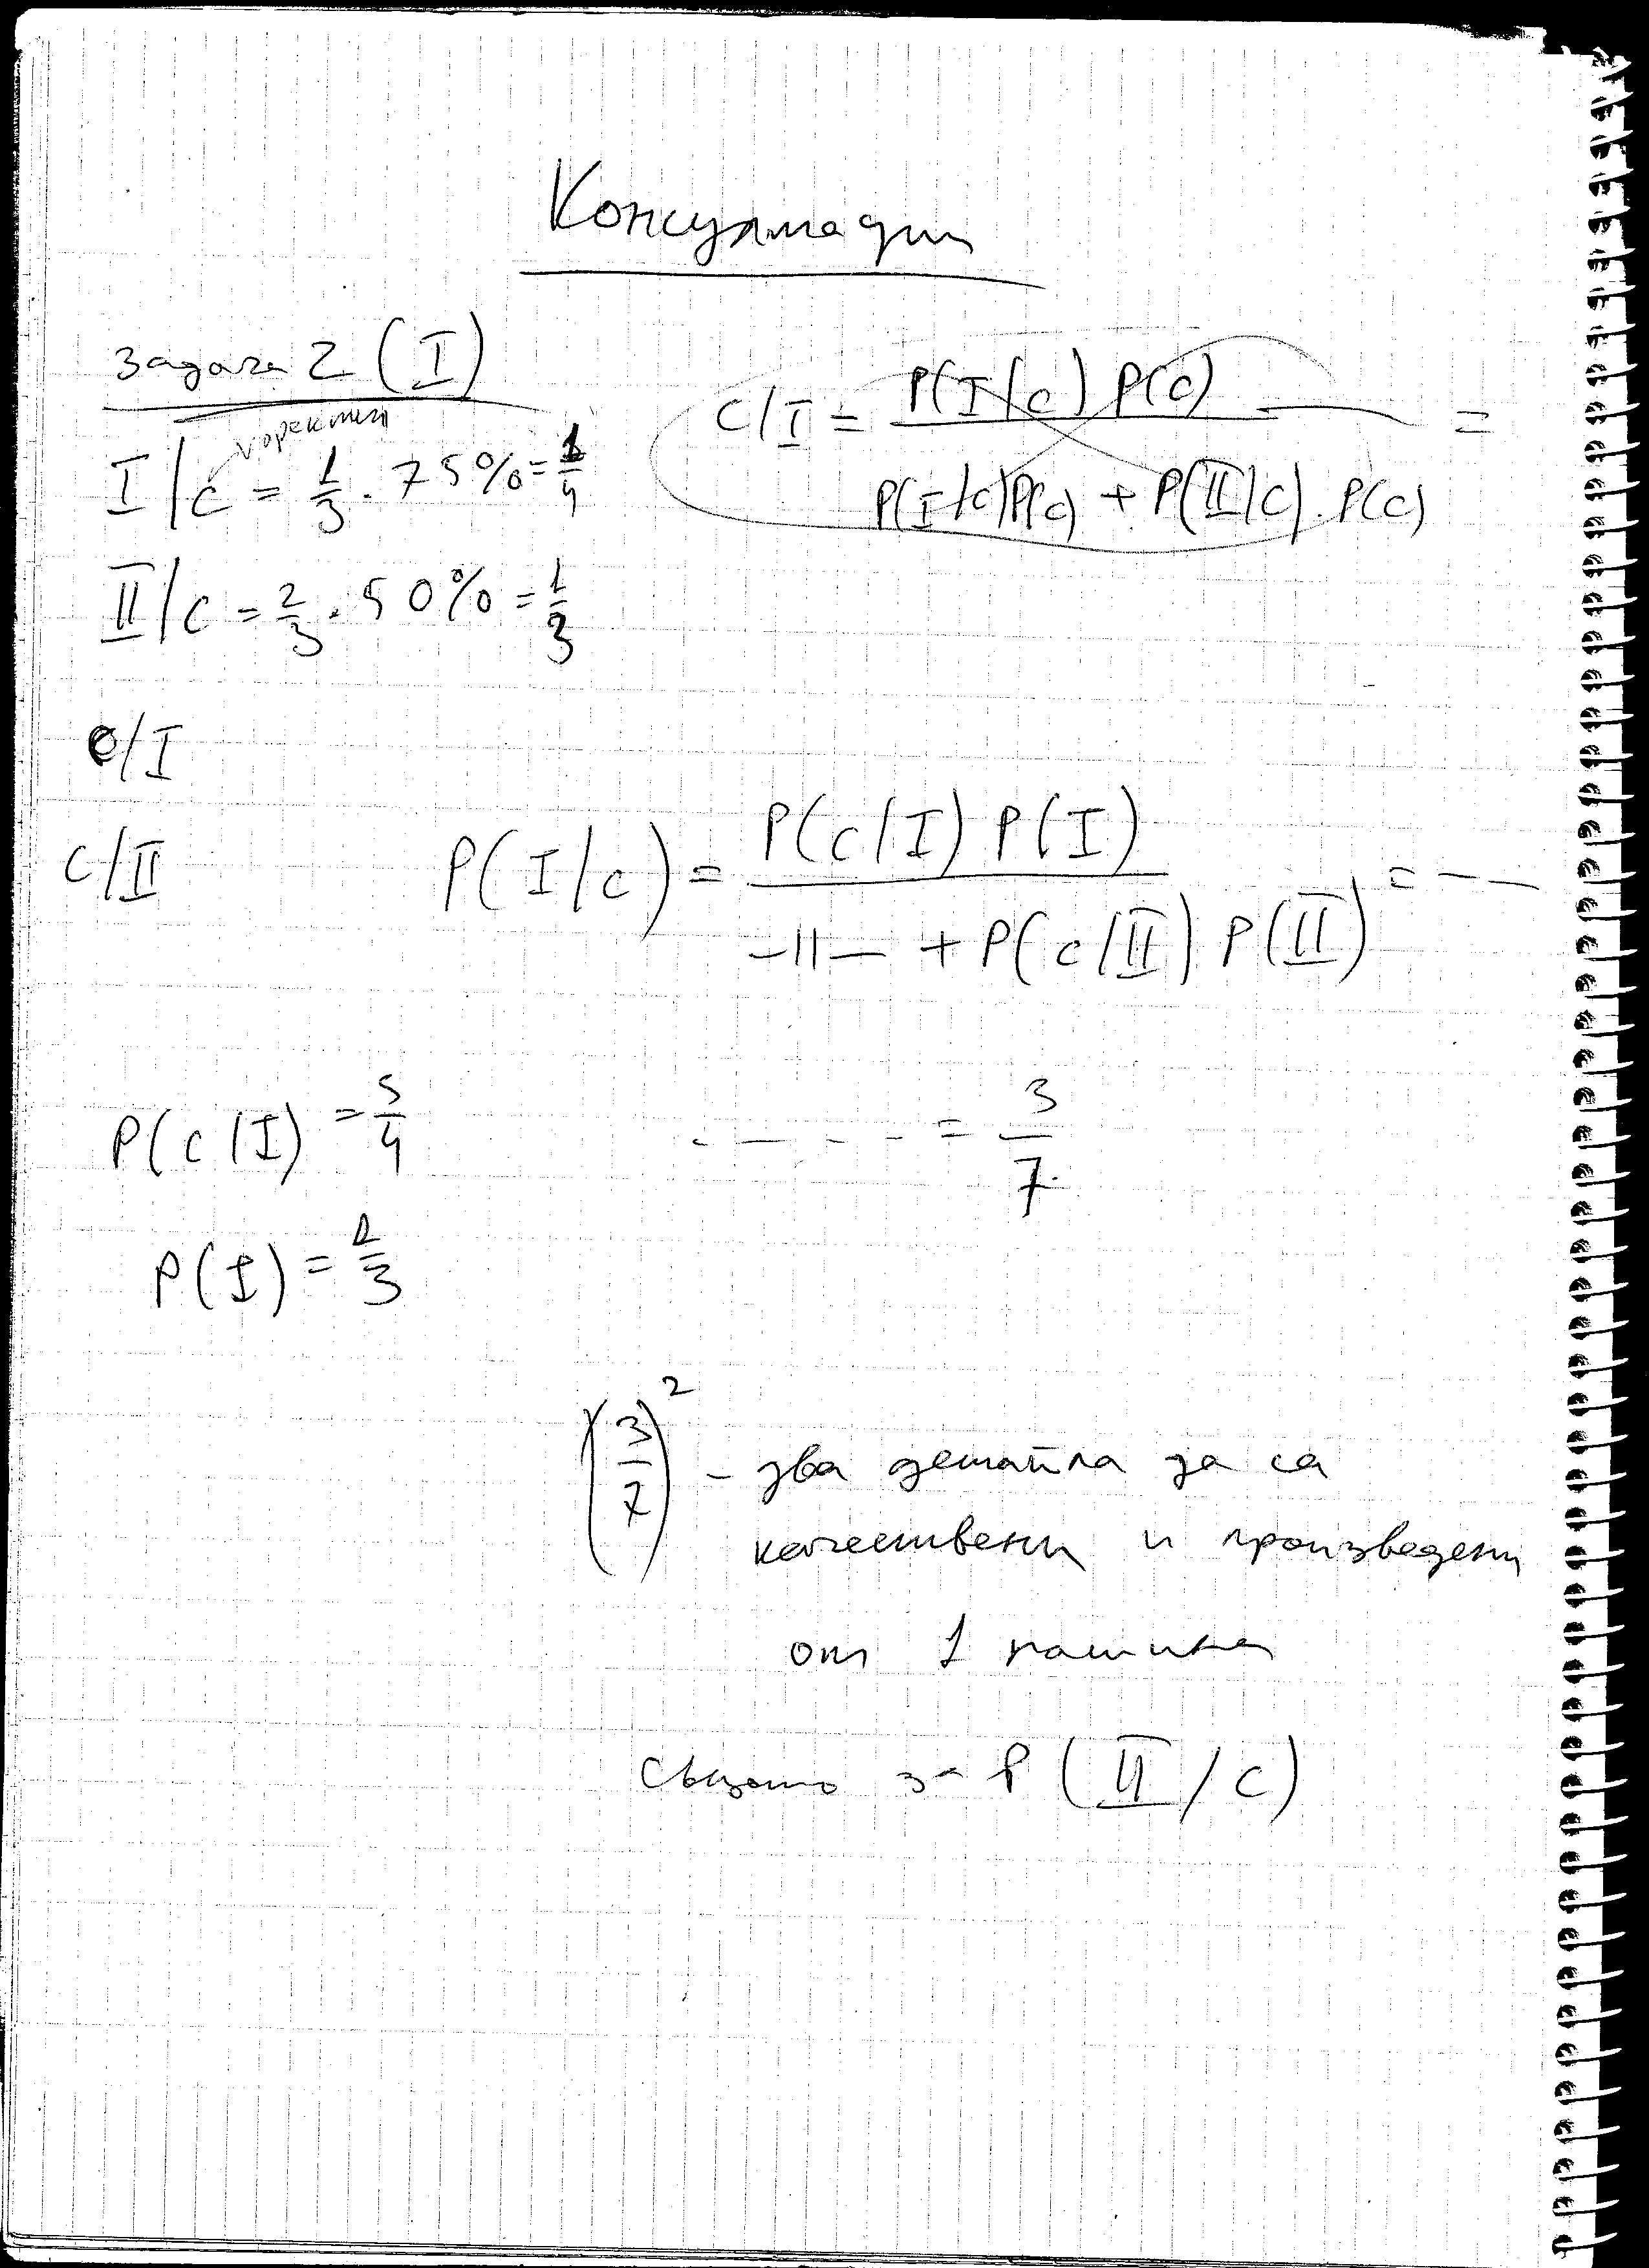 Консултации
Задача 2 (I)
коректен
I/c = 1/3 . 75% = 1/4
C/I = P(I/c) P(c) / P(I/c)P(c) + P(II/c) . P(c) =
II/c = 2/3 . 50% = 1/3
c/I
c/II
P(I/c) = P(c/I) P(I) / -||- + P(c/II) P(II) = ---
P(c/I) = 3/4
- - - - = 3/7
P(I) = 1/3
(3/7)² - два детайла да са
качествени и произведени
от 1 машина
Същото за P(II/c)